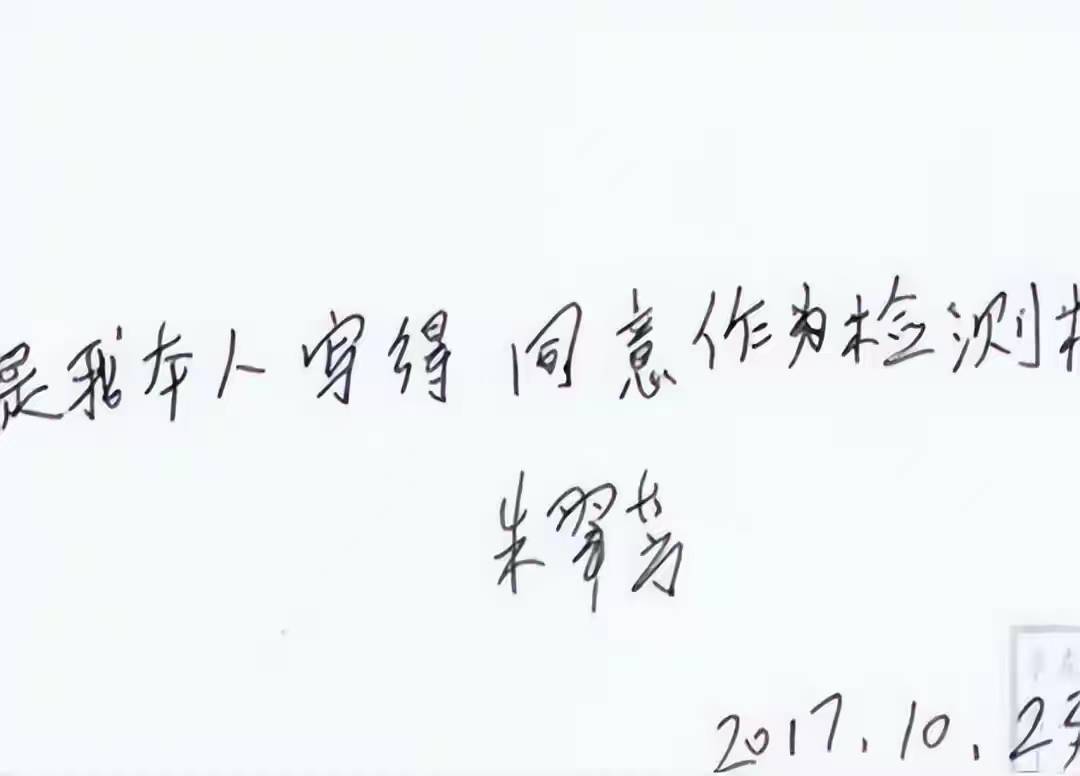 是我本人写得 同意作为检测
朱翠芳
2017.10.2